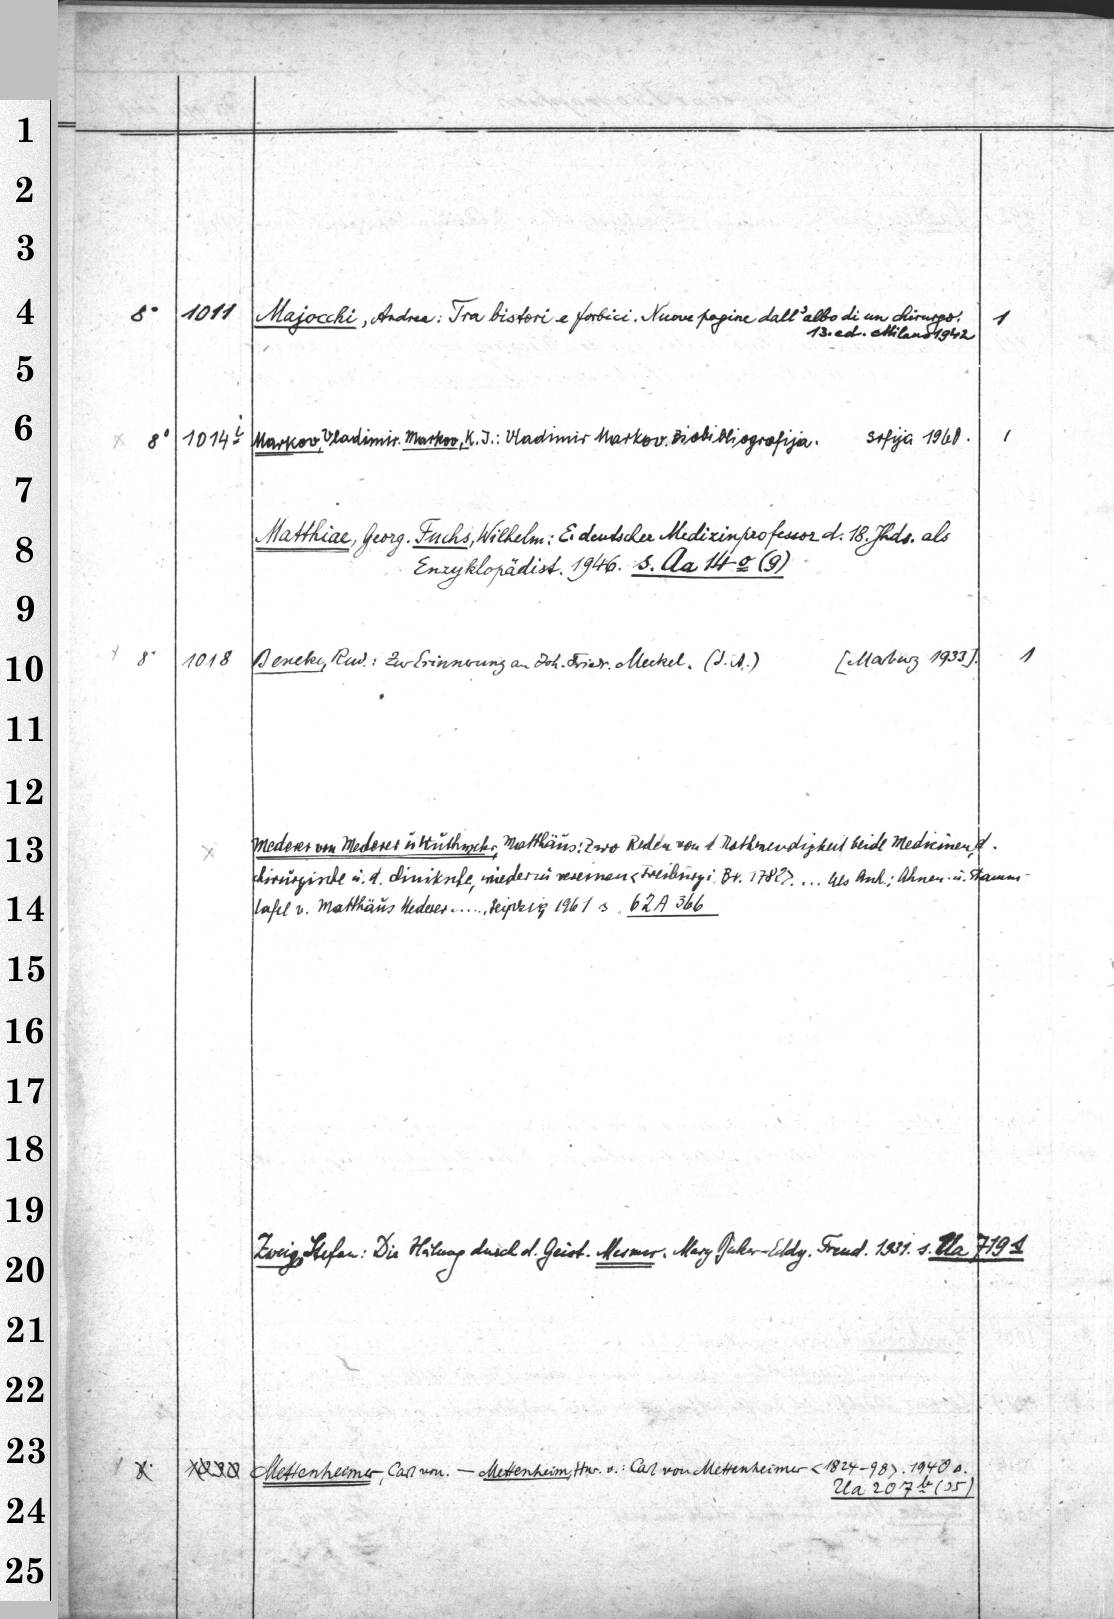 1
2
3
4
8° 1011 Majocchi, Andrea: Tra bistori e forbici. Nuove pagine dall'albo di un chirurgo. 1
13. ed. Milano 1942
5
6
× 8° 1014 i Markov, Vladimir. Markov, K. I.: Vladimir Markov. Biobibliografija. Sofija 1960. 1
7
8
Matthiae, Georg. Fuchs, Wilhelm: E. deutscher Medizinprofessor d. 18. Jhds. als
Enzyklopädist. 1946. s. Ua 14 o (9)
9
10
× 8° 1018 Beneke, Rud.: Zur Erinnerung an Joh. Friedr. Meckel. (S.A.) [Marburg 1933]. 1
11
12
13
× Mederer von Mederer u. Wuthwehr, Matthäus: Zwo Reden von d Nothwendigkeit beide Medicinen, d.
chirurgische u. d. clinische, wieder zu vereinen <Freiburg i. Br. 1782>. ... Als Anh.: Ahnen- u. Stamm-
14
tafel v. Matthäus Mederer ..... Leipzig 1961 s. 62 A 366
15
16
17
18
19
Zweig, Stefan: Die Heilung durch d. Geist. Mesmer. Mary Baker-Eddy. Freud. 1931. s. Ua 719
20
21
22
23
8° 1020 Mettenheimer, Carl von. — Mettenheim, Hnr. v.: Carl von Mettenheimer <1824-98>. 1940 s.
Ua 207 b (35)
24
25